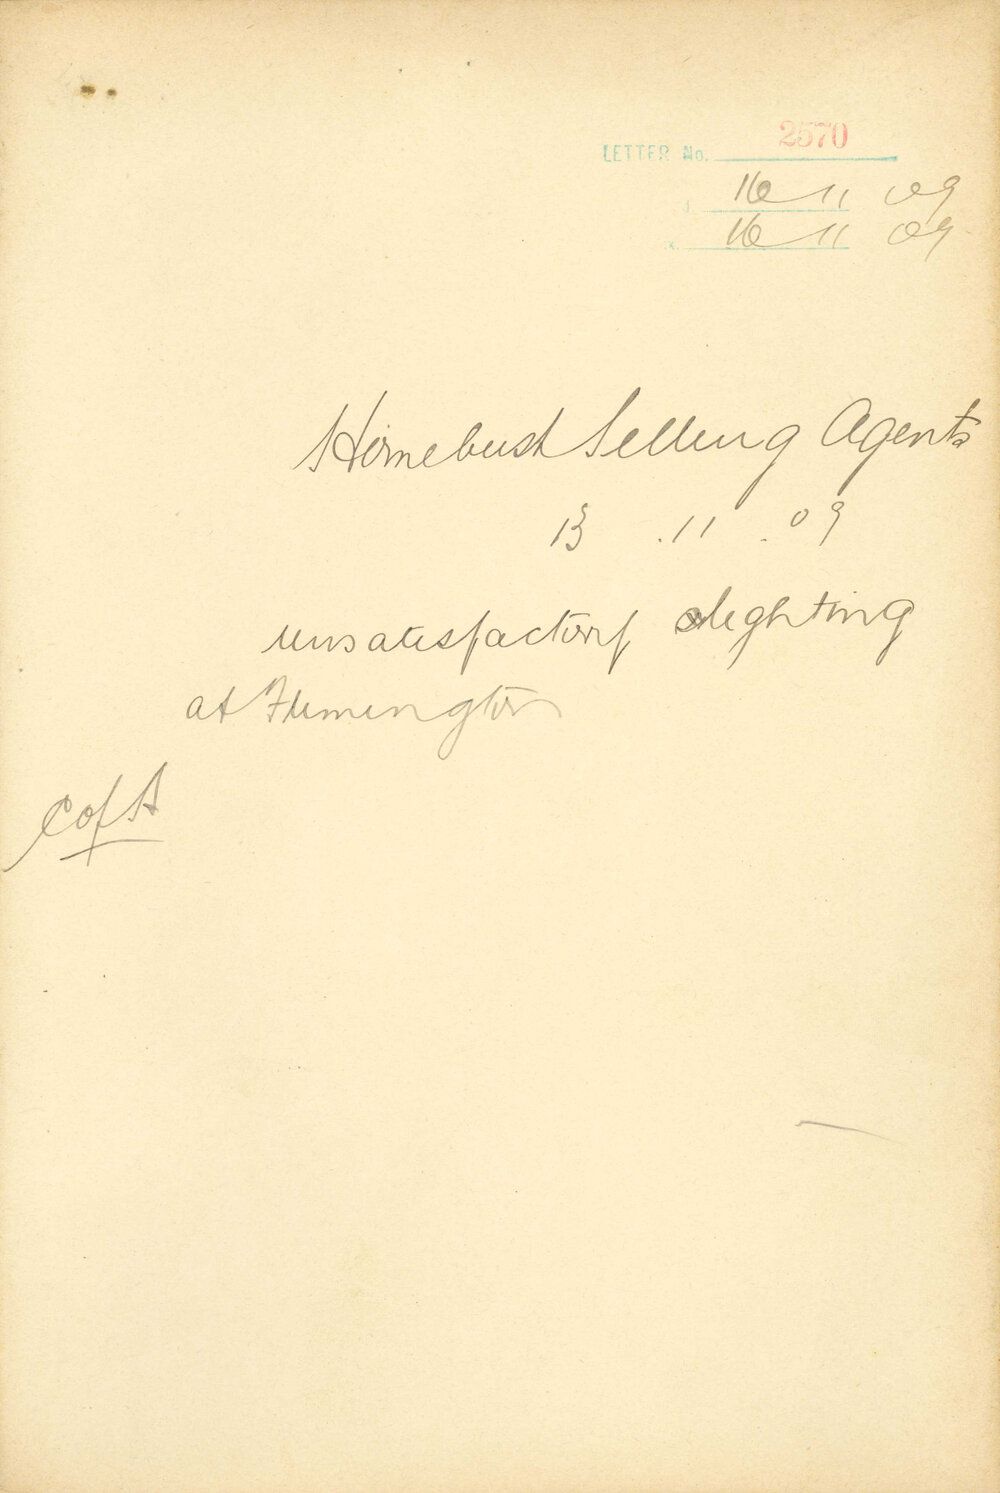 LETTER No. 2570
16 11 09
16 11 09
Homebush Selling Agents
13 . 11 . 09
unsatisfactory lighting
at Flemington
C of A